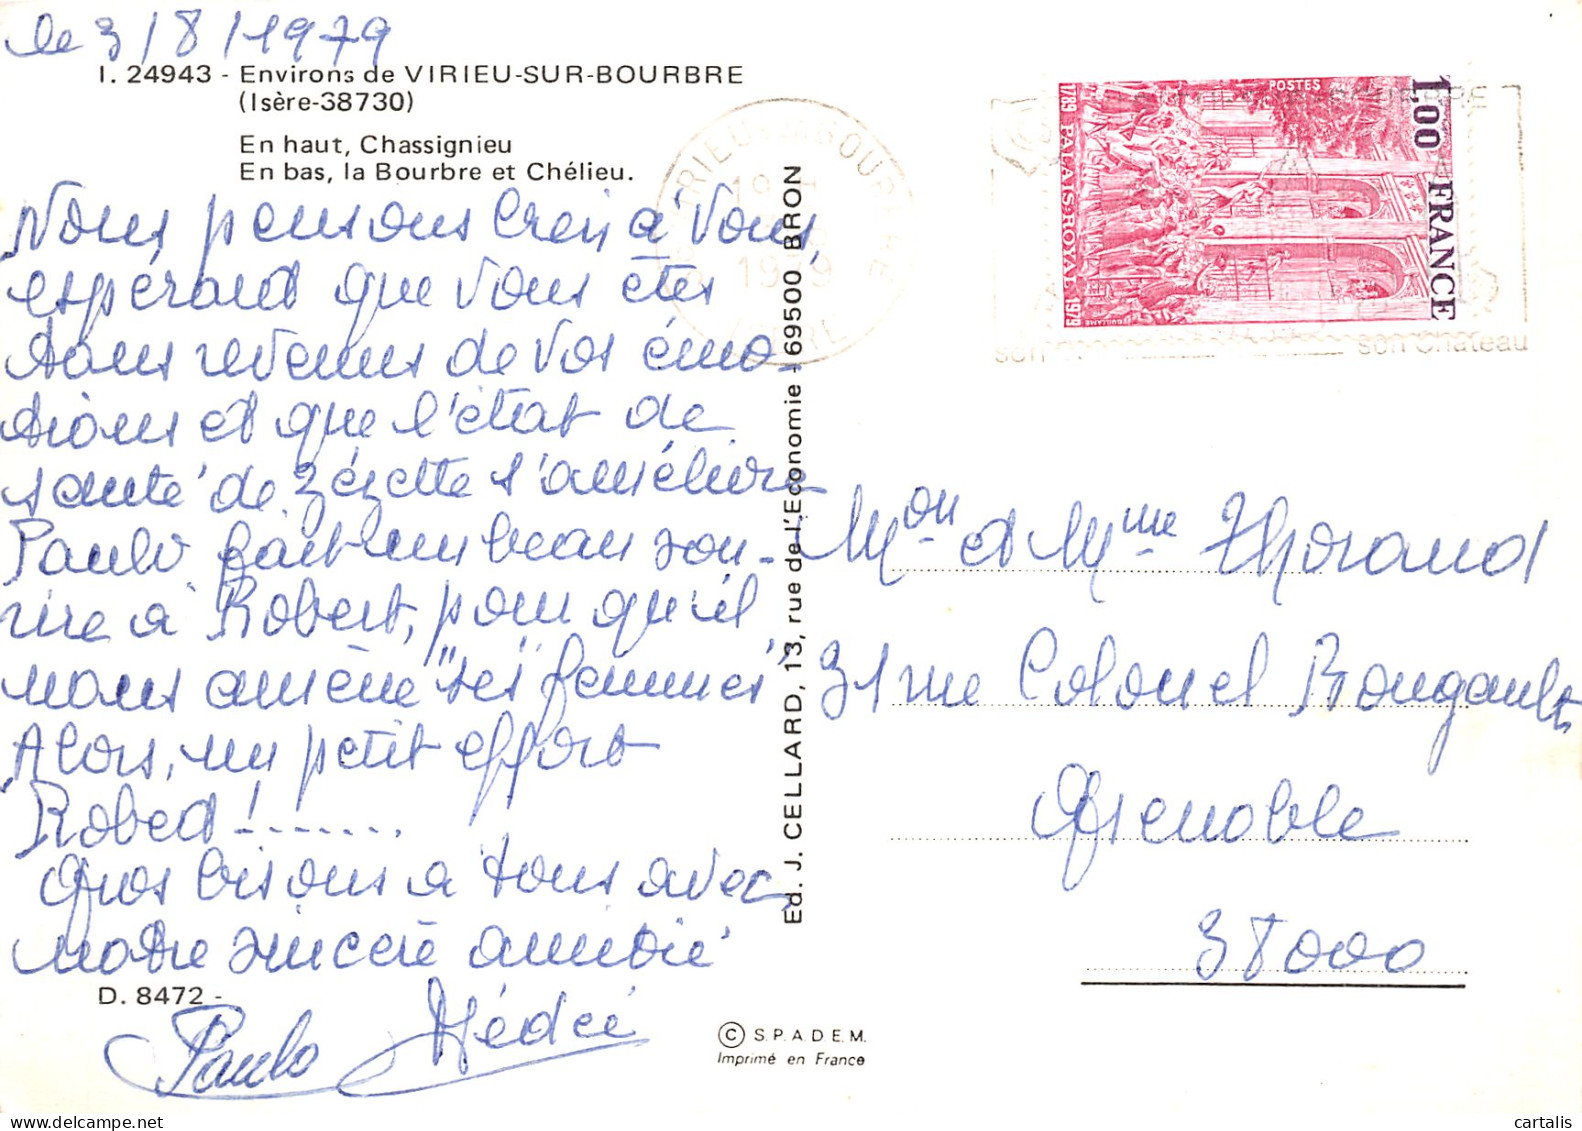 le 3/8/1979
I. 24943 - Environs de VIRIEU-SUR-BOURBRE
(Isère-38730)
En haut, Chassignieu
En bas, la Bourbre et Chélieu.
Nous pensons bien à vous
espérant que vous êtes
tous revenus de vos émo-
tions et que l'état de
santé de Zézette s'améliore
Paulo fait un beau sou-
rire à Robert, pour qu'il
nous amène "ses femmes"
Alors, un petit effort
Robert !.......
Gros bisous à tous avec
notre sincère amitié
D. 8472 -
Paulo Dédée
Ed. J. CELLARD, 13, rue de l'Economie - 69500 BRON
© S.P.A.D.E.M.
Imprimé en France
1789 PALAIS-ROYAL 1979
POSTES
1,00 FRANCE
son Château
Mon et Mme Thorand
31 rue Colonel Bougault
Grenoble
38000
cartalis